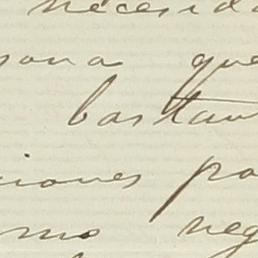 necesida
sona que
bastan
ciones po
mo neg